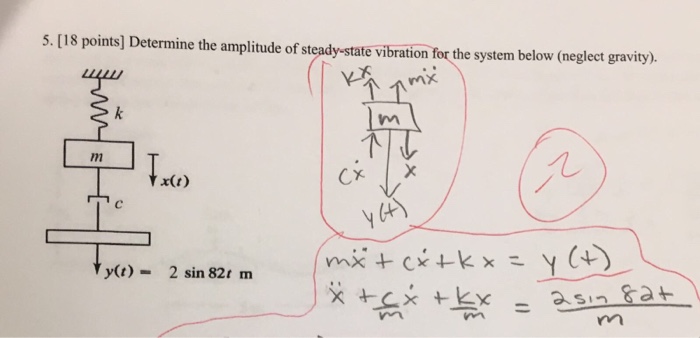 5. [18 points] Determine the amplitude of steady-state vibration for the system below (neglect gravity).
k
m
x(t)
c
y(t) = 2 sin 82t m
kx mẍ
m
cẋ x
y(t)
-2
mẍ + cẋ + kx = y(t)
ẍ + cẋ/m + kx/m = 2 sin 82t / m